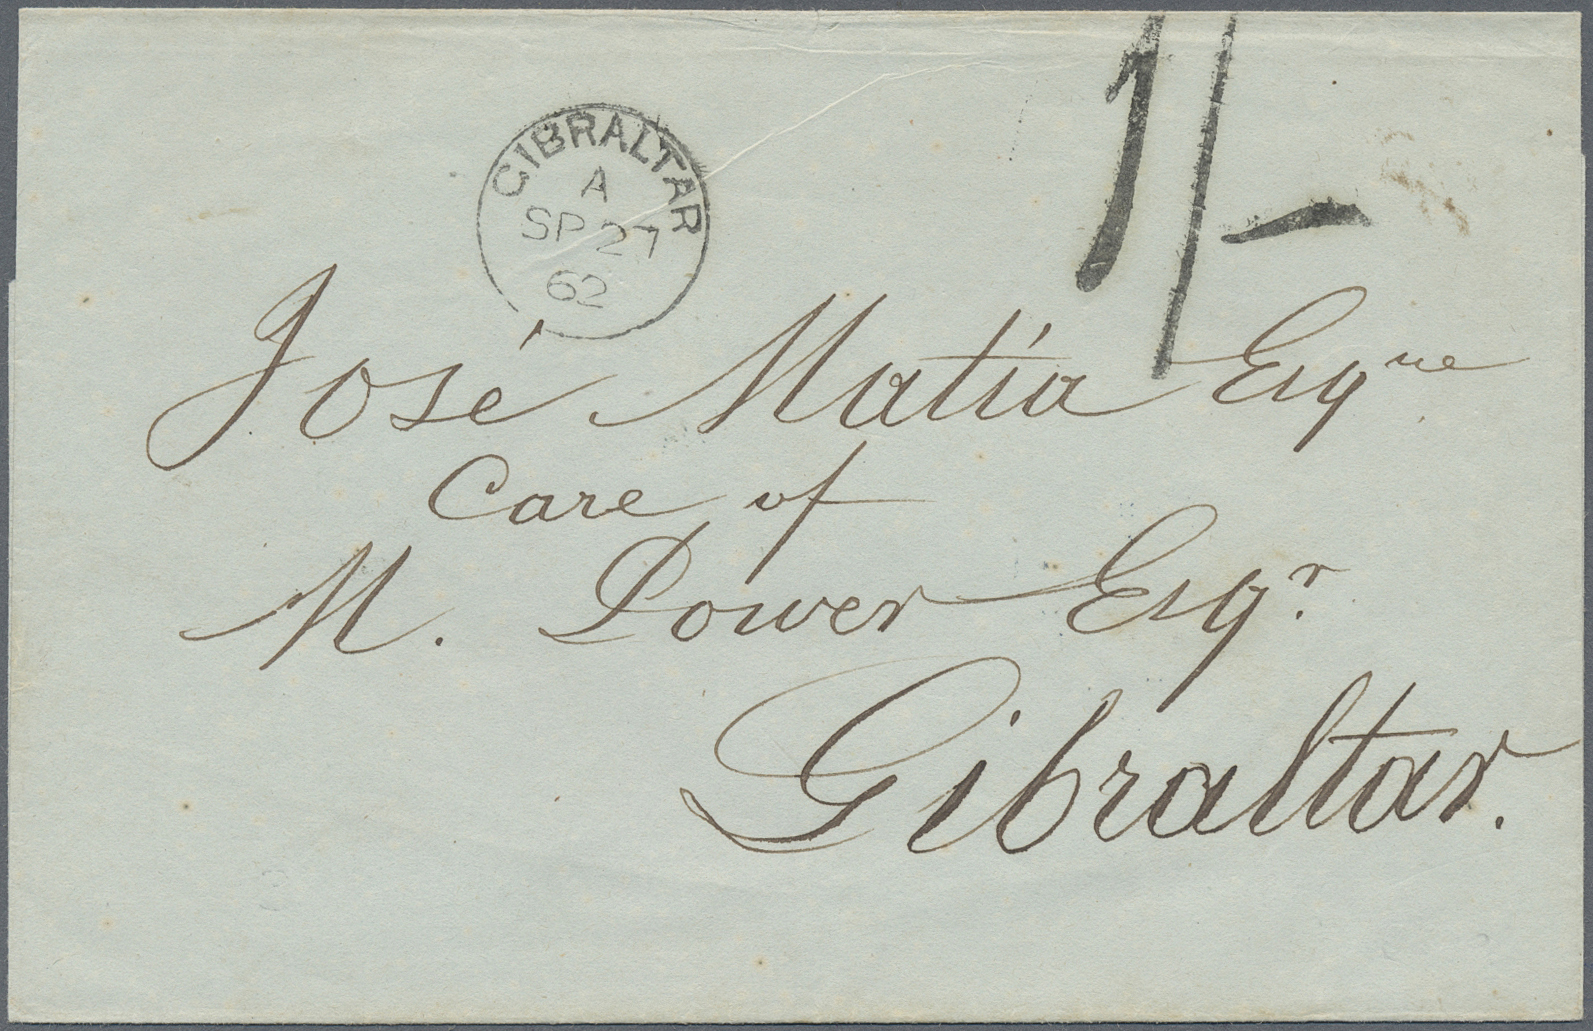 1/-
GIBRALTAR
A
SP 27
62
José Matía Esqre
Care of
M. Power Esqr.
Gibraltar.